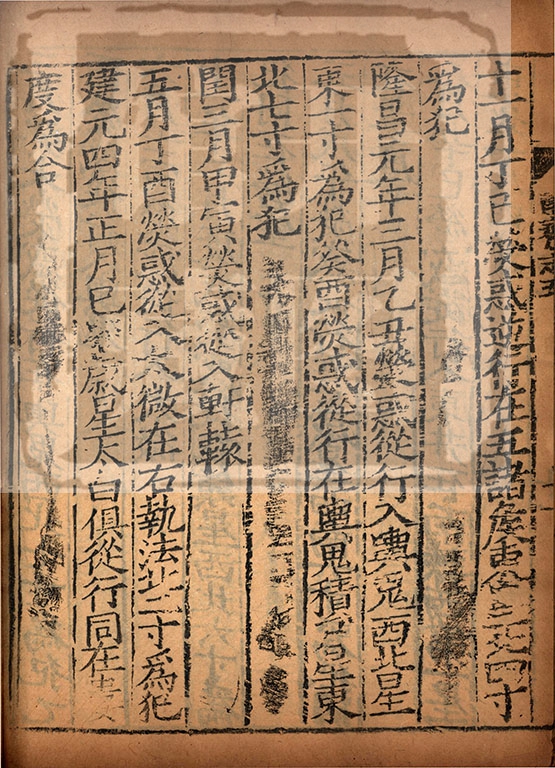 志五
十一月丁巳熒惑逆行在五諸侯東星北四寸
爲犯
隆昌元年三月乙丑熒惑從行入輿鬼西北星
東一寸爲犯癸酉熒惑從行在輿鬼積尸星東
北七寸爲犯
閏三月甲寅熒惑從入軒轅
五月丁酉熒惑從入太微在右執法北二寸爲犯
建元四年正月己歲星太白俱從行同在
度爲合